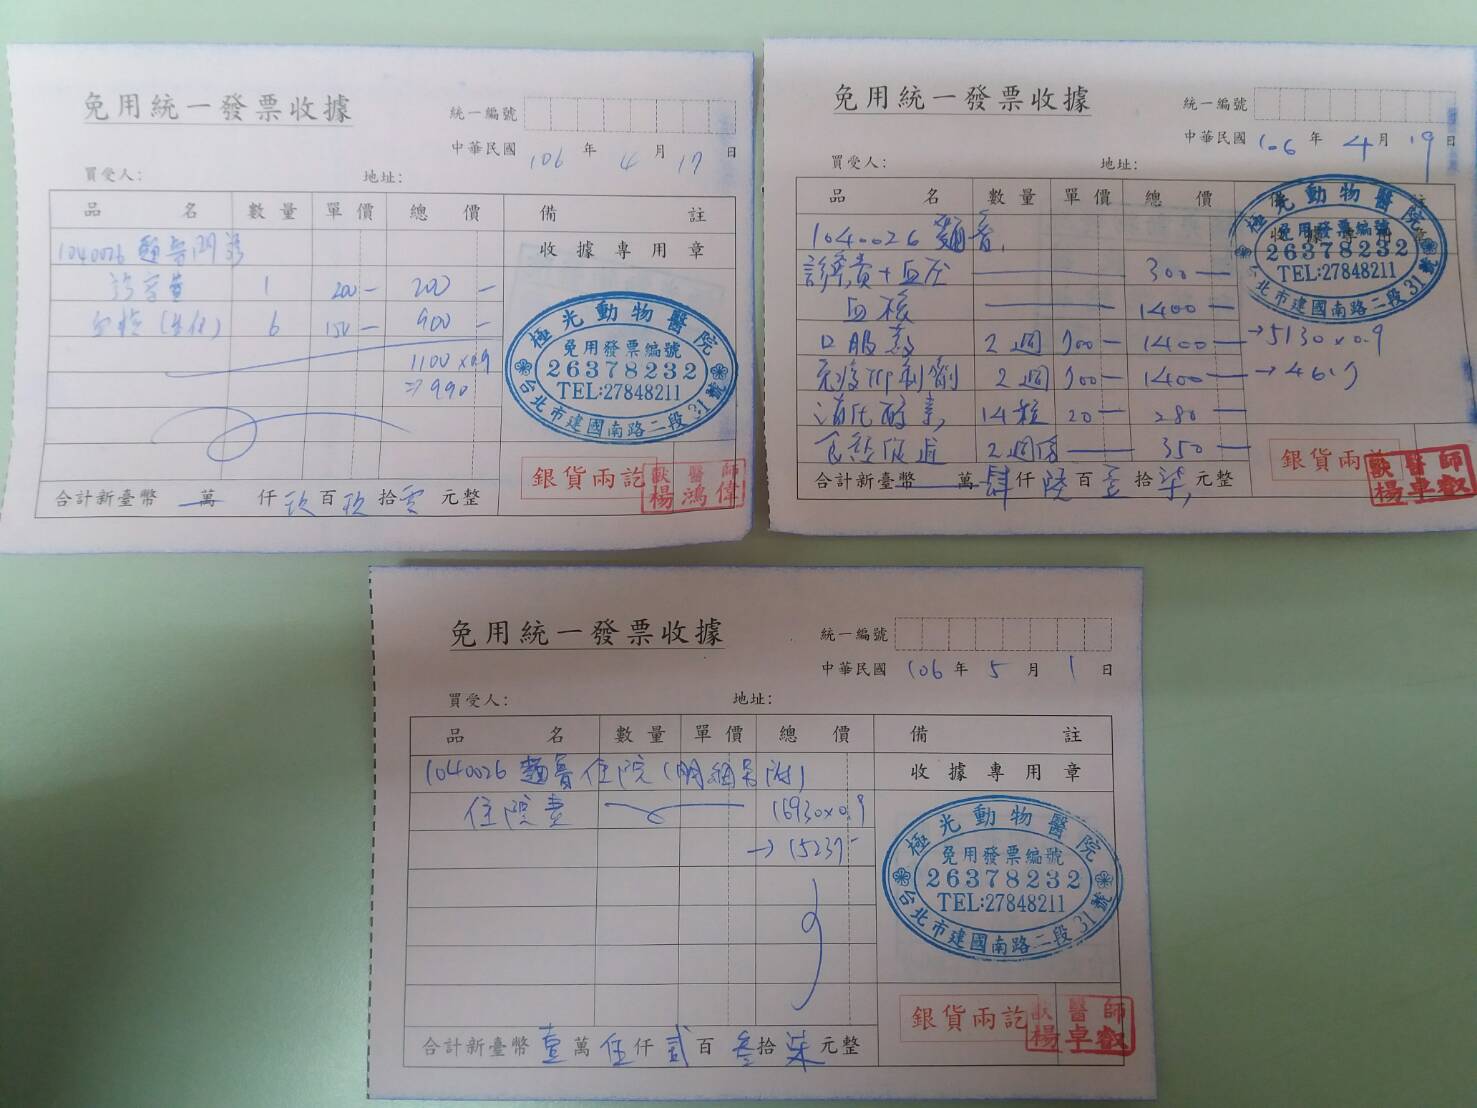 免用統一發票收據
統一編號
中華民國 106 年 4 月 17 日
買受人： 地址：
品名 數量 單價 總價 備註
1040026 麵魯門診 收據專用章
診察費 1 200— 200—
血檢(生化) 6 150— 900—
1100x0.9
⇒990
極光動物醫院
免用發票編號
26378232
TEL:27848211
台北市建國南路二段31號
銀貨兩訖
獸醫師
楊鴻偉
合計新臺幣 萬 仟 玖 百 玖 拾 零 元整
免用統一發票收據
統一編號
中華民國 106 年 4 月 19 日
買受人： 地址：
品名 數量 單價 總價
1040026 麵魯
診察費+血压 300—
血檢 1400—
口服藥 2週 700— 1400— →5130x0.9
免疫抑制劑 2週 700— 1400— →4617
消化酵素 14粒 20— 280—
2週 350—
極光動物醫院
免用發票編號
26378232
TEL:27848211
台北市建國南路二段31號
銀貨兩訖
獸醫師
楊卓叡
合計新臺幣 萬 肆 仟 陸 百 壹 拾 柒 元整
免用統一發票收據
統一編號
中華民國 106 年 5 月 1 日
買受人： 地址：
品名 數量 單價 總價 備註
1040026 麵魯住院(明細另附) 收據專用章
住院費 16930x0.9
→15237-
極光動物醫院
免用發票編號
26378232
TEL:27848211
台北市建國南路二段31號
銀貨兩訖
獸醫師
楊卓叡
合計新臺幣 壹 萬 伍 仟 貳 百 叁 拾 柒 元整